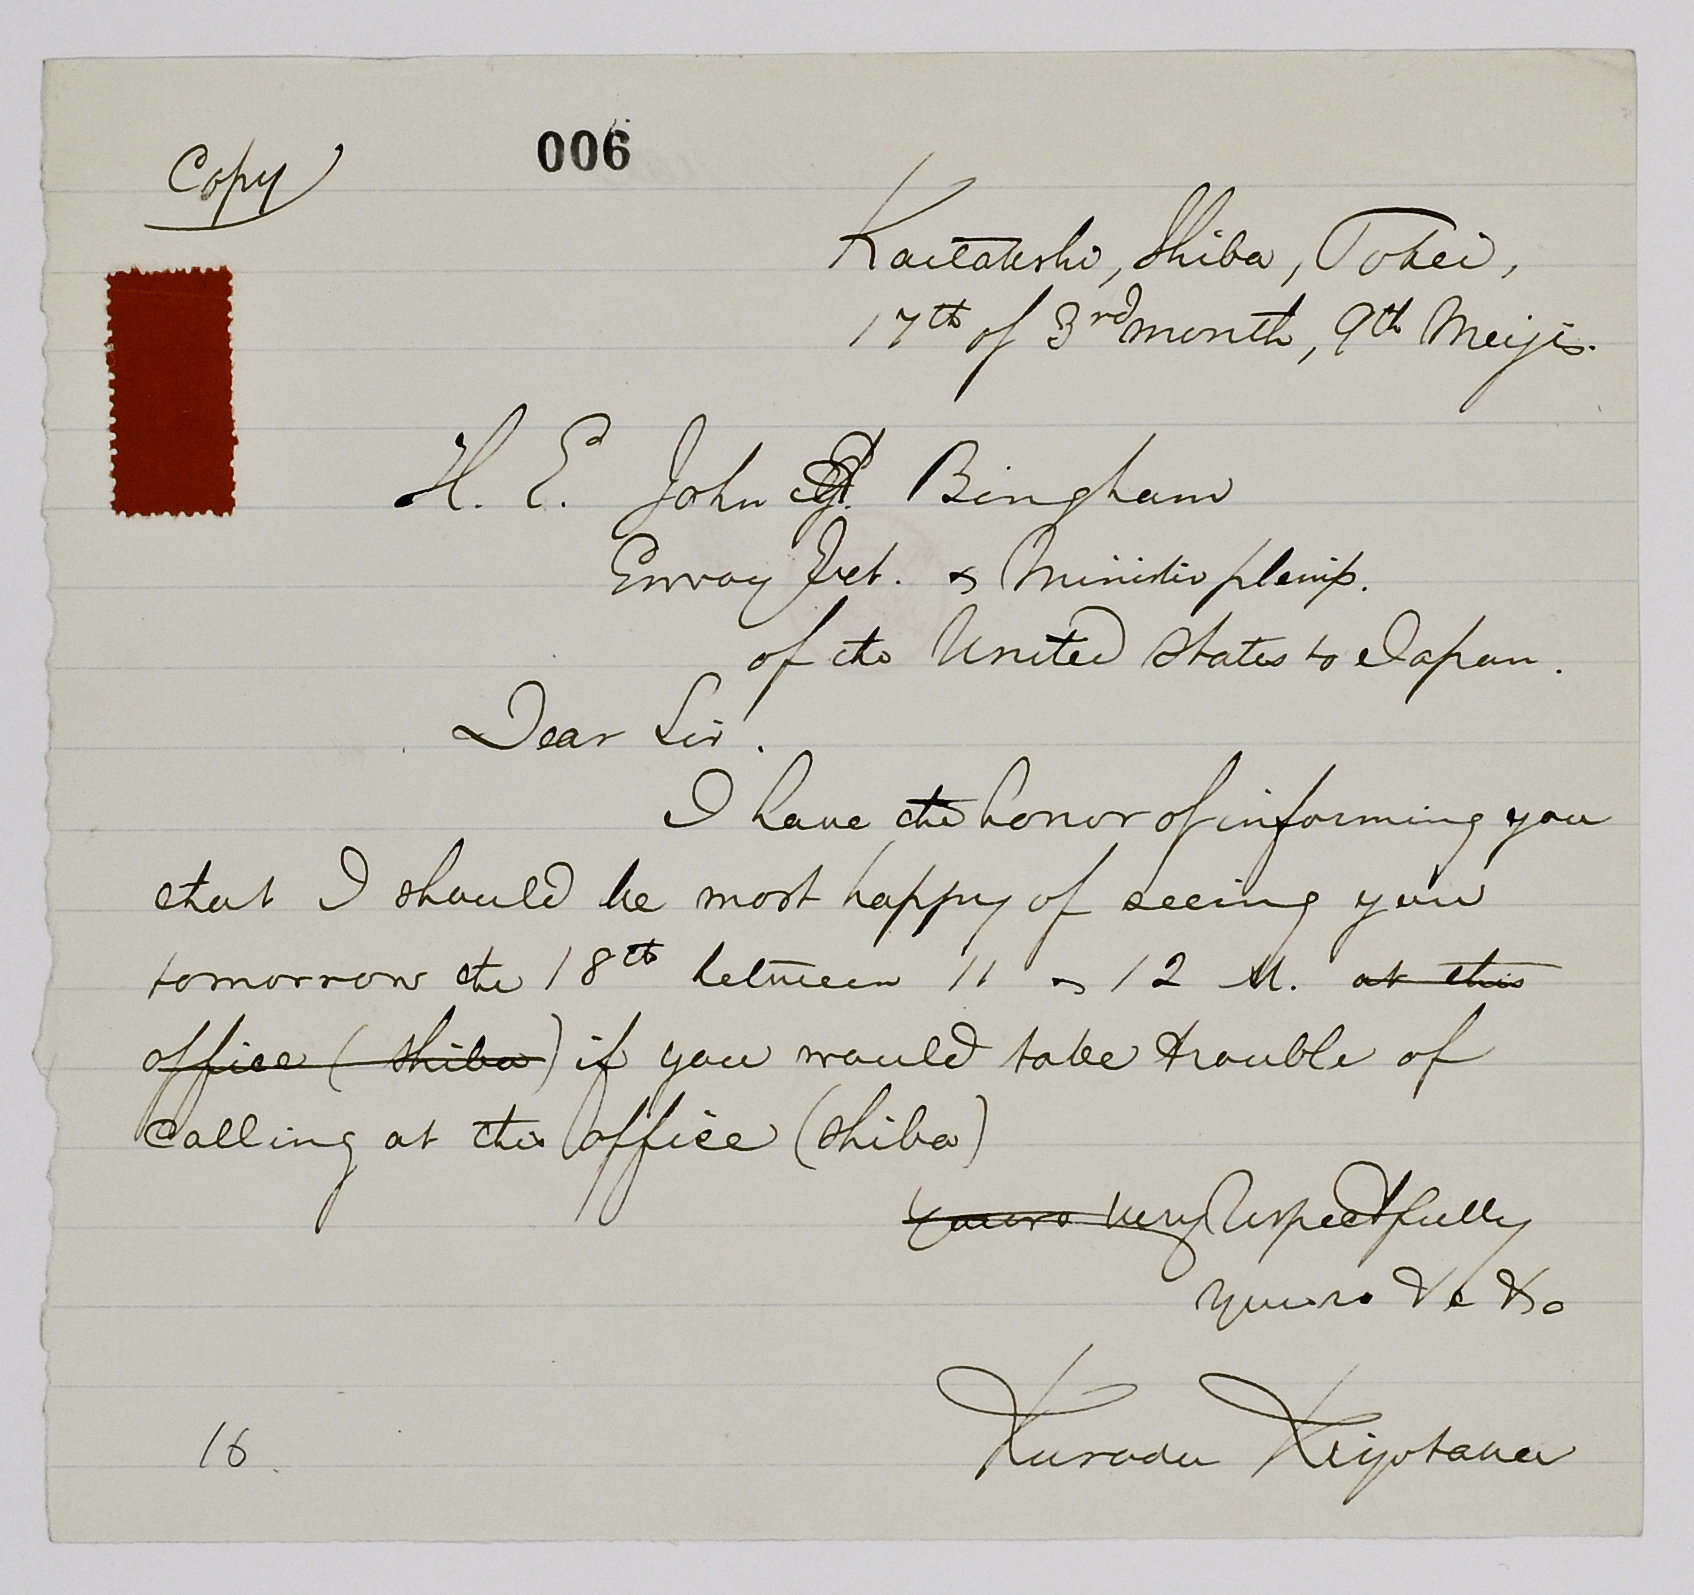 Copy
006
Kaitakshi, Shiba, Tokei,
17th of 3rd month, 9th Meiji.
H. E. John A. Bingham
Envoy Ext. & Minister plenip.
of the United States to Japan.
Dear Sir.
I have the honor of informing you
that I should be most happy of seeing you
tomorrow the 18th between 11 & 12 M. at this
office (Shiba) if you would take trouble of
calling at this office (Shiba)
Yours very Respectfully
Yours &c &c
Kuroda Kiyotaka
16